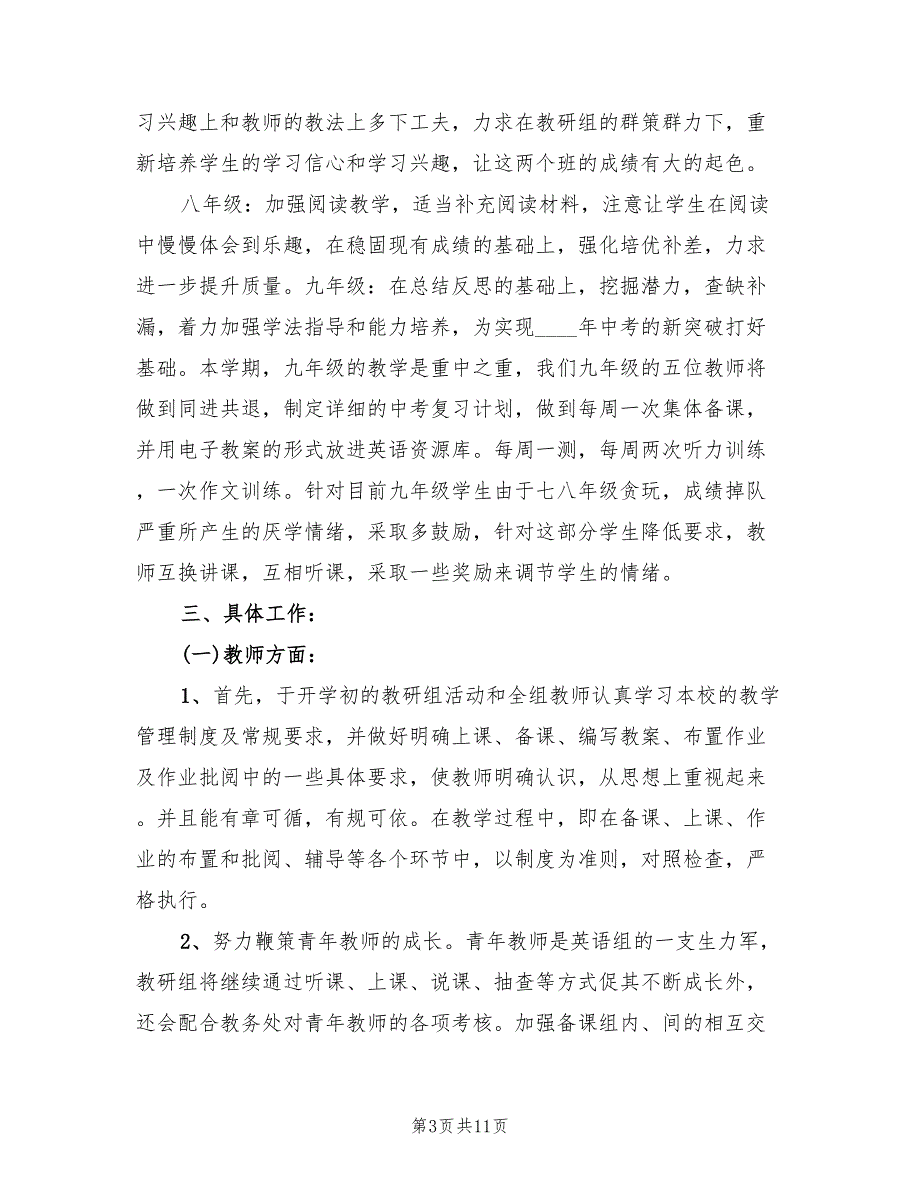 习兴趣上和教师的教法上多下工夫，力求在教研组的群策群力下，重
新培养学生的学习信心和学习兴趣，让这两个班的成绩有大的起色。
八年级：加强阅读教学，适当补充阅读材料，注意让学生在阅读
中慢慢体会到乐趣，在稳固现有成绩的基础上，强化培优补差，力求
进一步提升质量。九年级：在总结反思的基础上，挖掘潜力，查缺补
漏，着力加强学法指导和能力培养，为实现____年中考的新突破打好
基础。本学期，九年级的教学是重中之重，我们九年级的五位教师将
做到同进共退，制定详细的中考复习计划，做到每周一次集体备课，
并用电子教案的形式放进英语资源库。每周一测，每周两次听力训练
，一次作文训练。针对目前九年级学生由于七八年级贪玩，成绩掉队
严重所产生的厌学情绪，采取多鼓励，针对这部分学生降低要求，教
师互换讲课，互相听课，采取一些奖励来调节学生的情绪。
三、具体工作：
(一)教师方面：
1、首先，于开学初的教研组活动和全组教师认真学习本校的教学
管理制度及常规要求，并做好明确上课、备课、编写教案、布置作业
及作业批阅中的一些具体要求，使教师明确认识，从思想上重视起来
。并且能有章可循，有规可依。在教学过程中，即在备课、上课、作
业的布置和批阅、辅导等各个环节中，以制度为准则，对照检查，严
格执行。
2、努力鞭策青年教师的成长。青年教师是英语组的一支生力军，
教研组将继续通过听课、上课、说课、抽查等方式促其不断成长外，
还会配合教务处对青年教师的各项考核。加强备课组内、间的相互交
第3页共11页